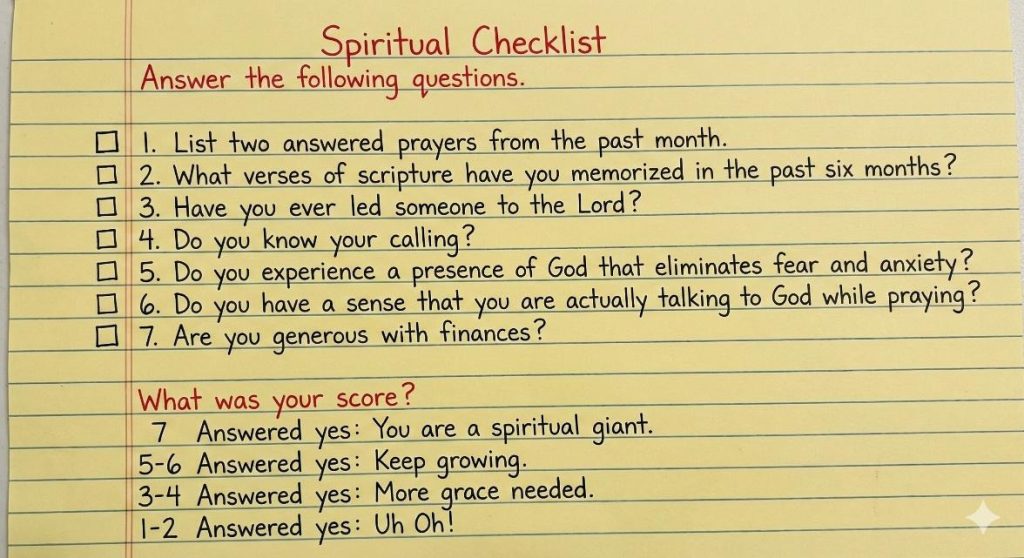 Spiritual Checklist
Answer the following questions.
1. List two answered prayers from the past month.
2. What verses of scripture have you memorized in the past six months?
3. Have you ever led someone to the Lord?
4. Do you know your calling?
5. Do you experience a presence of God that eliminates fear and anxiety?
6. Do you have a sense that you are actually talking to God while praying?
7. Are you generous with finances?
What was your score?
7 Answered yes: You are a spiritual giant.
5-6 Answered yes: Keep growing.
3-4 Answered yes: More grace needed.
1-2 Answered yes: Uh Oh!